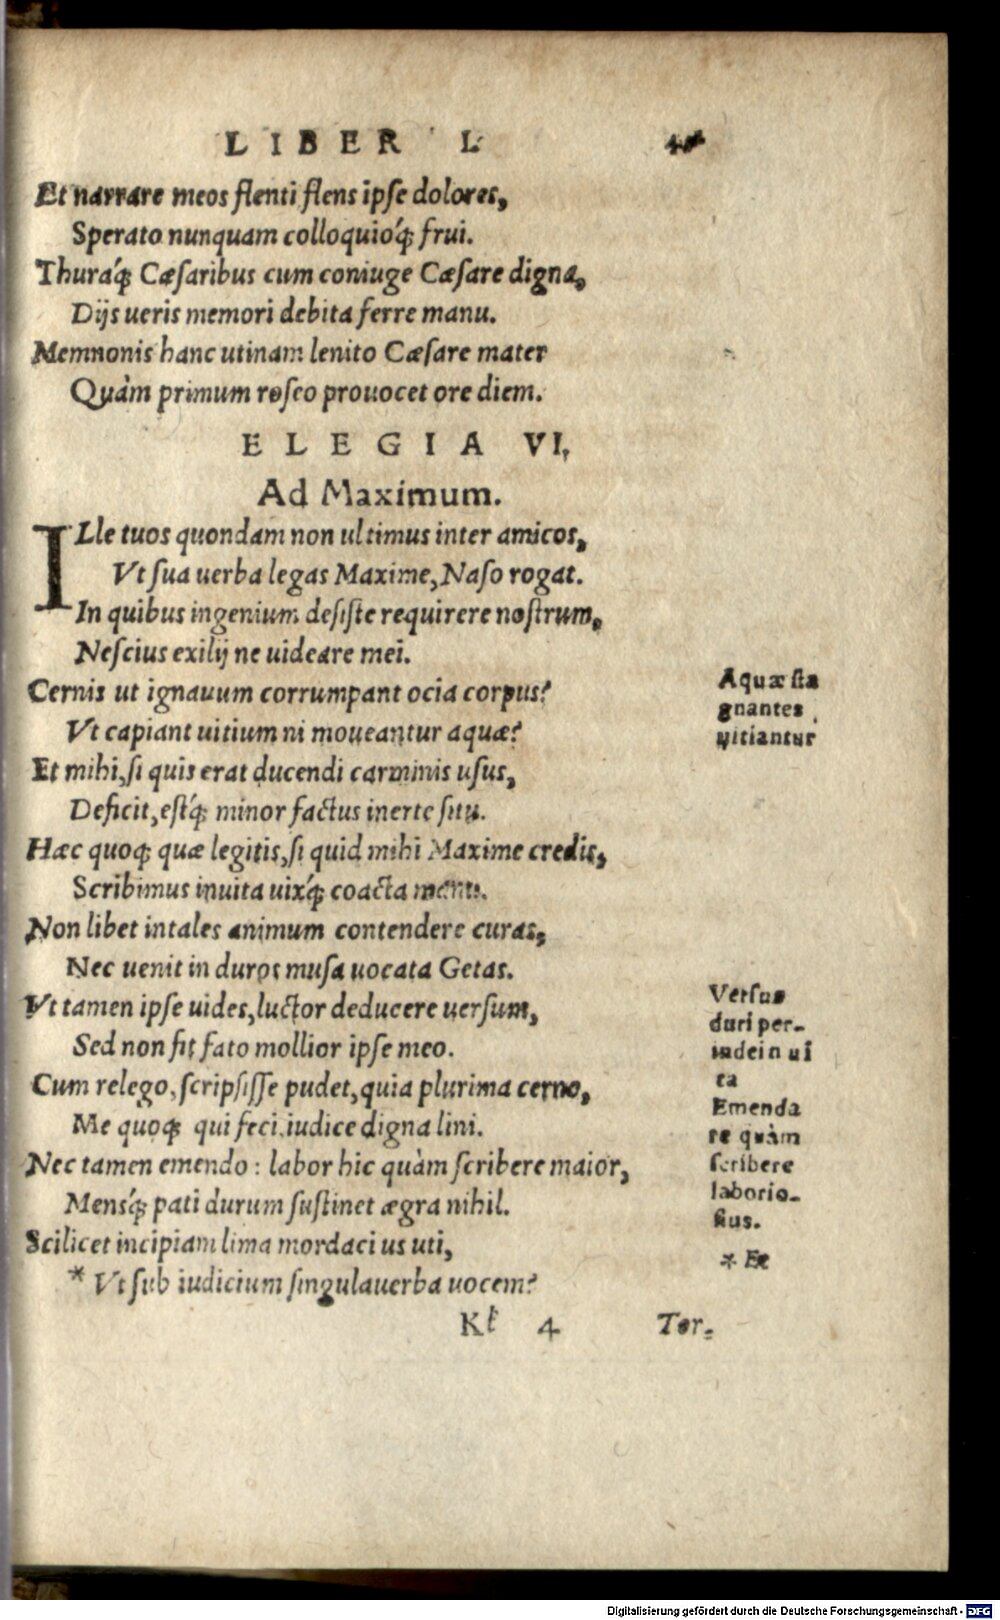 LIBER I.
Et narrare meos flenti flens ipse dolores,
Sperato nunquam colloquioq́; frui.
Thuraq́; Cæsaribus cum coniuge Cæsare digna,
Dijs ueris memori debita ferre manu.
Memnonis hanc utinam lenito Cæsare mater
Quàm primum roseo prouocet ore diem.
ELEGIA VI,
Ad Maximum.
ILle tuos quondam non ultimus inter amicos,
Vt sua uerba legas Maxime, Naso rogat.
In quibus ingenium desiste requirere nostrum,
Nescius exilij ne uideare mei.
Cernis ut ignauum corrumpant ocia corpus?
Vt capiant uitium ni moueantur aquæ?
Et mihi, si quis erat ducendi carminis usus,
Deficit, estq́; minor factus inerte situ.
Hæc quoq; quæ legitis, si quid mihi Maxime credis,
Scribimus inuita uixq́; coacta manu.
Non libet in tales animum contendere curas,
Nec uenit in duros musa uocata Getas.
Vt tamen ipse uides, luctor deducere uersum,
Sed non fit fato mollior ipse meo.
Cum relego, scripsisse pudet, quia plurima cerno,
Me quoq; qui feci iudice digna lini.
Nec tamen emendo: labor hic quàm scribere maior,
Mensq́; pati durum sustinet ægra nihil.
Scilicet incipiam lima mordacius uti,
* Vt sub iudicium singula uerba uocem?
Aquæ sta
gnantes
uitiantur
Versus
duri per-
inde in ui
ta
Emenda
re quàm
scribere
laborio-
sius.
* Et
Kk 4 Tor-
Digitalisierung gefördert durch die Deutsche Forschungsgemeinschaft - DFG